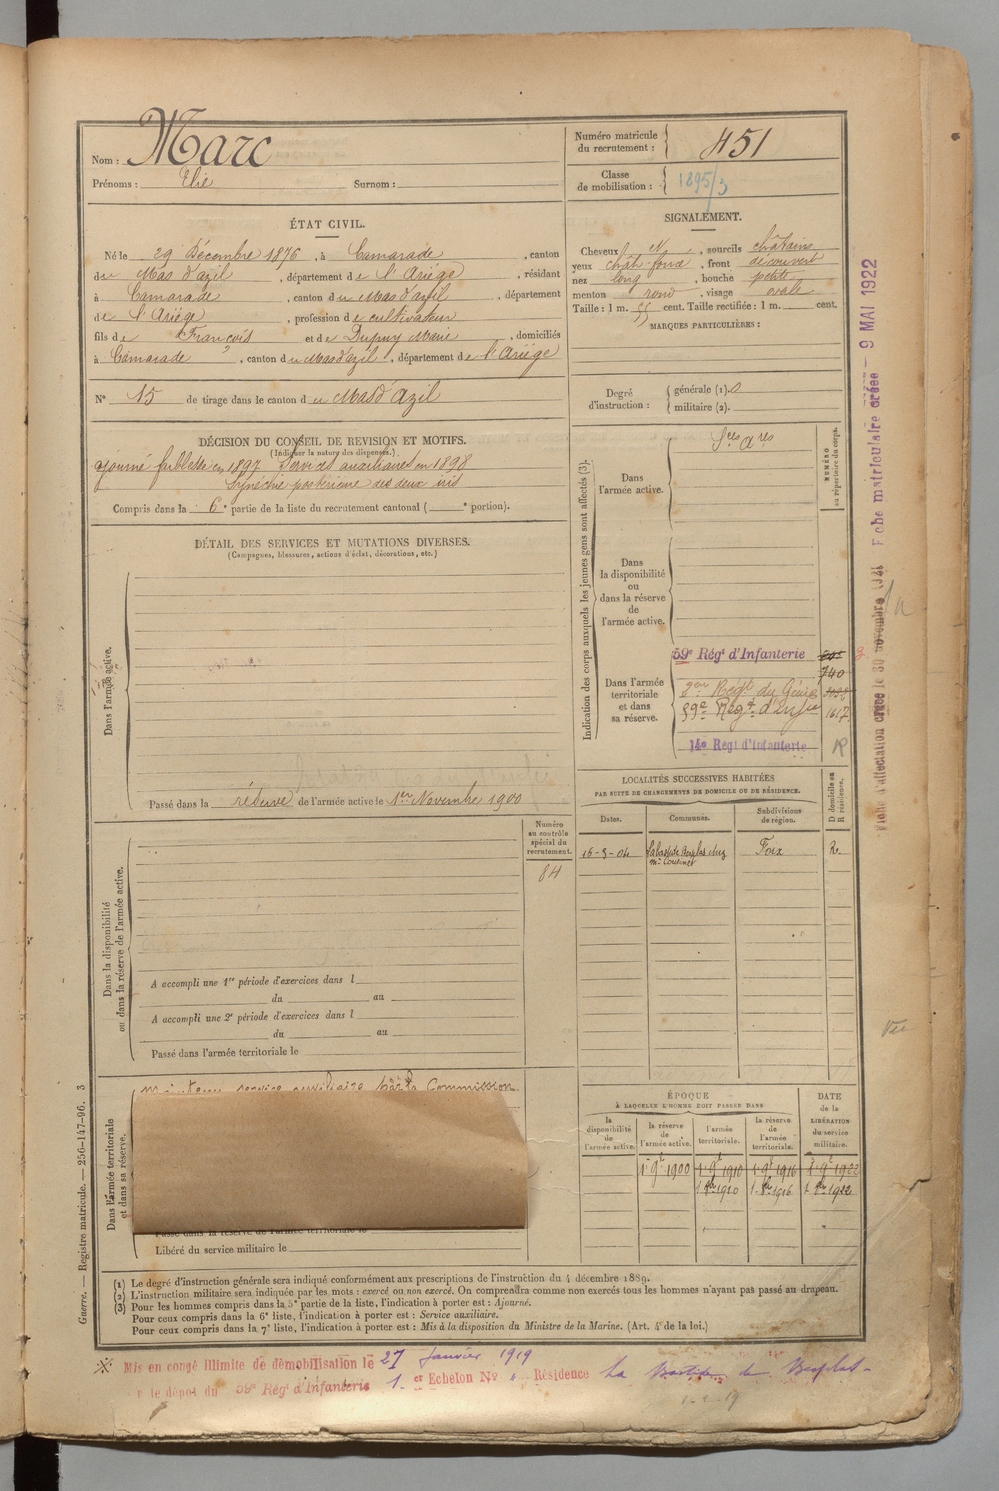 Nom : Marc
Prénoms : Elie Surnom :
Numéro matricule du recrutement : 451
Classe de mobilisation : 1895/3
ÉTAT CIVIL.
Né le 29 Décembre 1876, à Camarade, canton
du Mas d'azil, département de l'Ariège, résidant
à Camarade, canton du Mas d'azil, département
de l'Ariège, profession de cultivateur
fils de François et de Dupuy Marie, domiciliés
à Camarade, canton du Mas d'azil, département de l'Ariège
N° 15 de tirage dans le canton du Mas d'Azil
SIGNALEMENT.
Cheveux N, sourcils châtains
yeux chât foncé, front découvert
nez long, bouche petite
menton rond, visage ovale
Taille : 1 m. 55 cent. Taille rectifiée : 1 m. cent.
MARQUES PARTICULIÈRES :
Degré d'instruction : générale (1). 0
militaire (2).
DÉCISION DU CONSEIL DE REVISION ET MOTIFS.
(Indiquer la nature des dispenses.)
Ajourné faiblesse en 1897 Services auxiliaires en 1898
Synéchie postérieure des deux iris
Compris dans la 6e partie de la liste du recrutement cantonal ( e portion).
DÉTAIL DES SERVICES ET MUTATIONS DIVERSES.
(Campagnes, blessures, actions d'éclat, décorations, etc.)
Dans l'armée active.
Passé dans la réserve de l'armée active le 1er Novembre 1900
Indication des corps auxquels les jeunes gens sont affectés (3).
NUMÉRO au répertoire du corps.
Dans l'armée active.
Sces Ares
Dans la disponibilité ou dans la réserve de l'armée active.
Dans l'armée territoriale et dans sa réserve.
59e Régt d'Infanterie
740
2me Régt du Génie
59e Régt d'Infie 1617
14e Régt d'Infanterie R
LOCALITÉS SUCCESSIVES HABITÉES
PAR SUITE DE CHANGEMENTS DE DOMICILE OU DE RÉSIDENCE.
Dates. Communes. Subdivisions de région. D domicile ou R résidence.
Foix R.
Numéro au contrôle spécial du recrutement.
84
Dans la disponibilité ou dans la réserve de l'armée active.
A accompli une 1re période d'exercices dans l
du au
A accompli une 2e période d'exercices dans l
du au
Passé dans l'armée territoriale le
Dans l'armée territoriale et dans sa réserve.
Maintenu service auxiliaire par la Commission
Passé dans la réserve de l'armée territoriale le
Libéré du service militaire le
ÉPOQUE
À LAQUELLE L'HOMME DOIT PASSER DANS
la disponibilité de l'armée active.
la réserve de l'armée active.
l'armée territoriale.
la réserve de l'armée territoriale.
DATE de la LIBÉRATION du service militaire.
1 9bre 1900 1 9bre 1910 1 9bre 1916 1 9bre 1922
(1) Le degré d'instruction générale sera indiqué conformément aux prescriptions de l'instruction du 4 décembre 1889.
(2) L'instruction militaire sera indiquée par les mots : exercé ou non exercé. On comprendra comme non exercés tous les hommes n'ayant pas passé au drapeau.
(3) Pour les hommes compris dans la 5e partie de la liste, l'indication à porter est : Ajourné.
Pour ceux compris dans la 6e liste, l'indication à porter est : Service auxiliaire.
Pour ceux compris dans la 7e liste, l'indication à porter est : Mis à la disposition du Ministre de la Marine. (Art. 4 de la loi.)
Guerre. — Registre matricule. — 256-147-96. 3
Mis en congé illimité de démobilisation le 27 Janvier 1919
le dépôt du 59e Régt d'Infanterie 1er Echelon No Résidence La Bastide de Besplas
Fiche matriculaire créée — 9 MAI 1922
Fiche d'affectation créée le 30 novembre
Vu